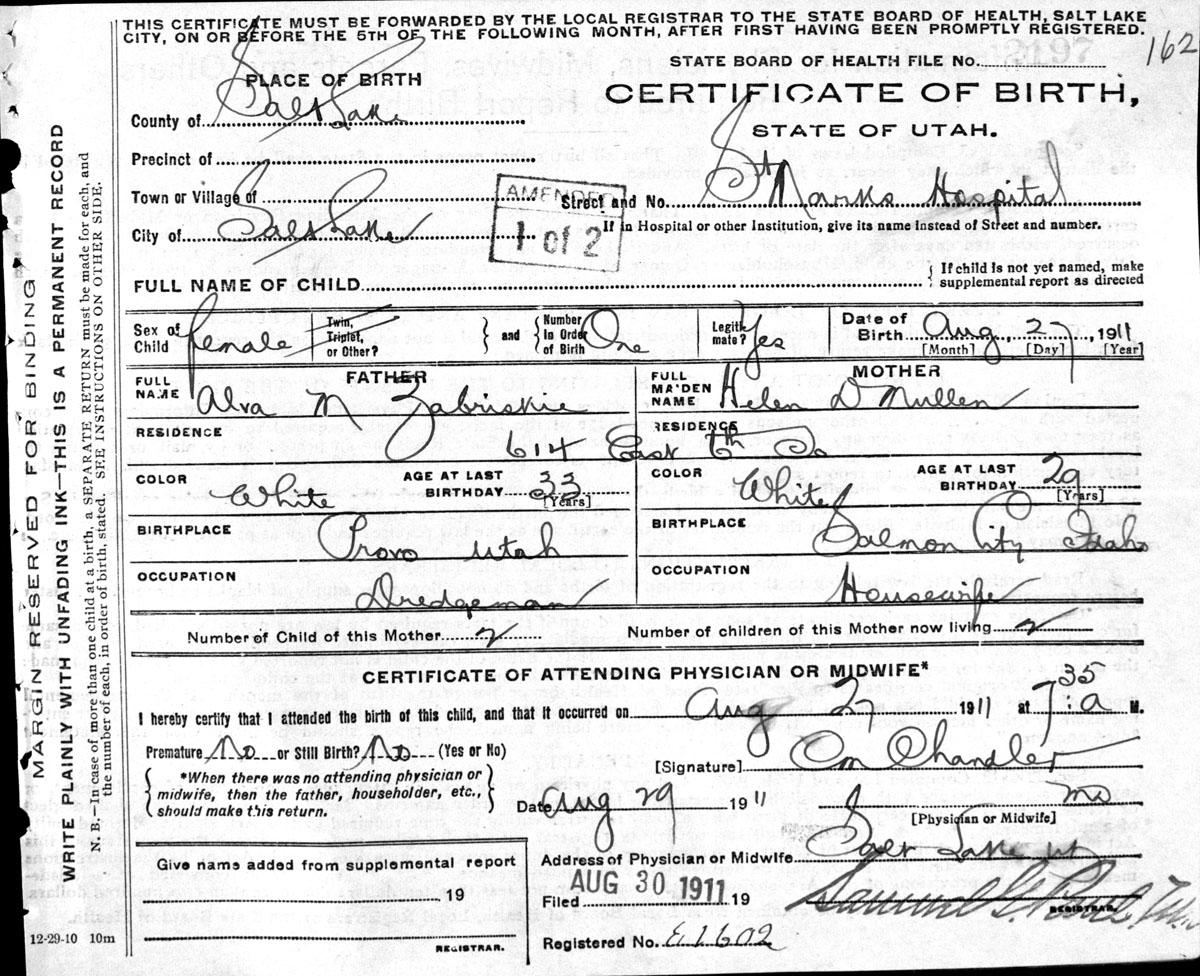 THIS CERTIFICATE MUST BE FORWARDED BY THE LOCAL REGISTRAR TO THE STATE BOARD OF HEALTH, SALT LAKE
CITY, ON OR BEFORE THE 5TH OF THE FOLLOWING MONTH, AFTER FIRST HAVING BEEN PROMPTLY REGISTERED.
162
STATE BOARD OF HEALTH FILE No.
PLACE OF BIRTH
CERTIFICATE OF BIRTH,
STATE OF UTAH.
County of Salt Lake
Precinct of
Town or Village of
City of Salt Lake
AMENDED
1 of 2
Street and No. St Marks Hospital
If in Hospital or other Institution, give its name instead of Street and number.
FULL NAME OF CHILD
{ If child is not yet named, make
supplemental report as directed
Sex of Child female
Twin, Triplet, or Other?
} and {
Number in Order of Birth One
Legitimate? Yes
Date of Birth Aug 27 1911
[Month] [Day] [Year]
FATHER
FULL NAME Alva M Zabriskie
MOTHER
FULL MAIDEN NAME Helen D Mullen
RESIDENCE
RESIDENCE
614 East 6th So
COLOR White
AGE AT LAST BIRTHDAY 33
[Years]
COLOR White
AGE AT LAST BIRTHDAY 29
[Years]
BIRTHPLACE
Provo Utah
BIRTHPLACE
Salmon City Idaho
OCCUPATION
Dredgeman
OCCUPATION
Housewife
Number of Child of this Mother 2
Number of children of this Mother now living 2
CERTIFICATE OF ATTENDING PHYSICIAN OR MIDWIFE*
I hereby certify that I attended the birth of this child, and that it occurred on Aug 27 1911 at 7:35 a M.
Premature No or Still Birth? No (Yes or No)
[Signature] Chandler
{ *When there was no attending physician or
midwife, then the father, householder, etc.,
should make this return. }
Date Aug 29 1911
MD
[Physician or Midwife]
Address of Physician or Midwife Salt Lake Ut
Give name added from supplemental report
19
REGISTRAR.
Filed AUG 30 1911 19
Samuel G. Paul
REGISTRAR.
Registered No. E1602
12-29-10 10m
MARGIN RESERVED FOR BINDING
WRITE PLAINLY WITH UNFADING INK—THIS IS A PERMANENT RECORD
N. B.—In case of more than one child at a birth, a SEPARATE RETURN must be made for each, and
the number of each, in order of birth, stated. SEE INSTRUCTIONS ON OTHER SIDE.